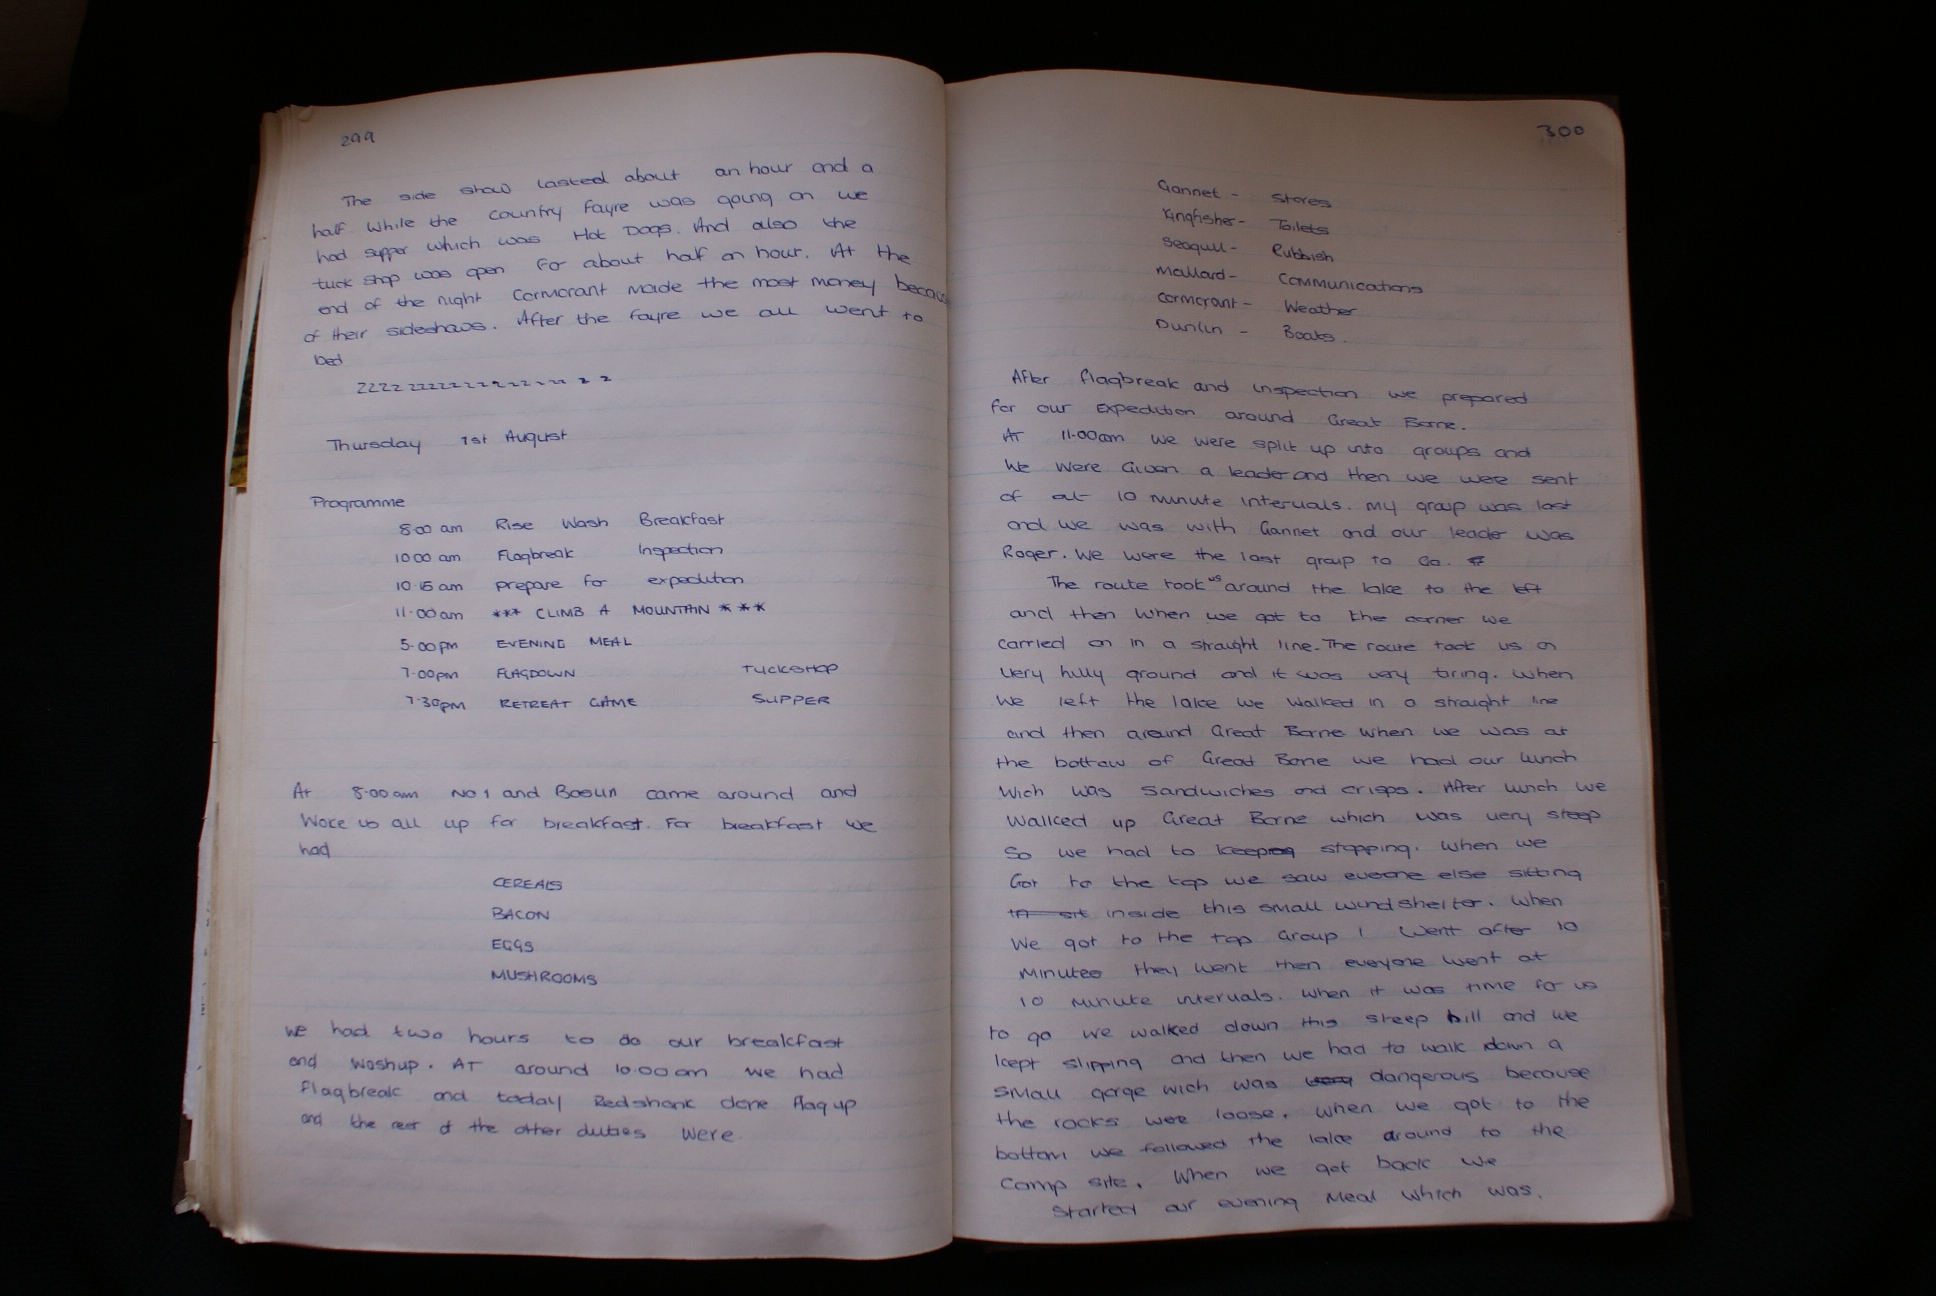 299
The side show lasted about an hour and a
half. While the country fayre was going on we
had supper which was Hot Dogs. And also the
tuck shop was open for about half an hour. At the
end of the night Cormorant made the most money becaus
of their sideshows. After the fayre we all went to
bed
zzzz zzzzzzzzzzzzzz z z
Thursday 1st August
Programme
8:00 am Rise Wash Breakfast
10 00 am Flagbreak Inspection
10.15 am prepare for expedition
11.00 am *** CLIMB A MOUNTAIN ***
5.00pm EVENING MEAL
7.00pm FLAGDOWN TUCKSHOP
7.30pm RETREAT GAME SUPPER
At 8.00am No 1 and Bosun came around and
Woke us all up for breakfast. For breakfast we
had
CEREALS
BACON
EGGS
MUSHROOMS
We had two hours to do our breakfast
and washup. AT around 10.00am we had
flagbreak and today Redshank done flag up
and the rest of the other duties were.
300
Gannet - Stores
Kingfisher - Toilets
Seagull - Rubbish
Mallard - Communications
Cormorant - Weather
Dunlin - Boats.
After flagbreak and inspection we prepared
for our expedition around Great Borne.
At 11.00am we were split up into groups and
We were Given a leader and then we were sent
of at 10 minute intervals. My group was last
and we was with Gannet and our leader was
Roger. We were the last group to Go.
The route took us around the lake to the left
and then when we got to the corner we
carried on in a straight line. The route took us on
very hilly ground and it was very tiring. When
We left the lake we walked in a straight line
and then around Great Borne when we was at
the bottom of Great Borne we had our lunch
Wich was sandwiches and crisps. After lunch we
Walked up Great Borne which was very steep
So we had to keep stopping. When we
Got to the top we saw eveone else sitting
inside this small wind shelter. When
We got to the top Group 1 went after 10
Minutes they went then eveyone went at
10 minute intervals. When it was time for us
to go we walked down this steep hill and we
kept slipping and then we had to walk down a
Small gorge wich was very dangerous because
the rocks were loose. When we got to the
bottom we followed the lake around to the
Camp site. When we got back we
Started our evening Meal which was.